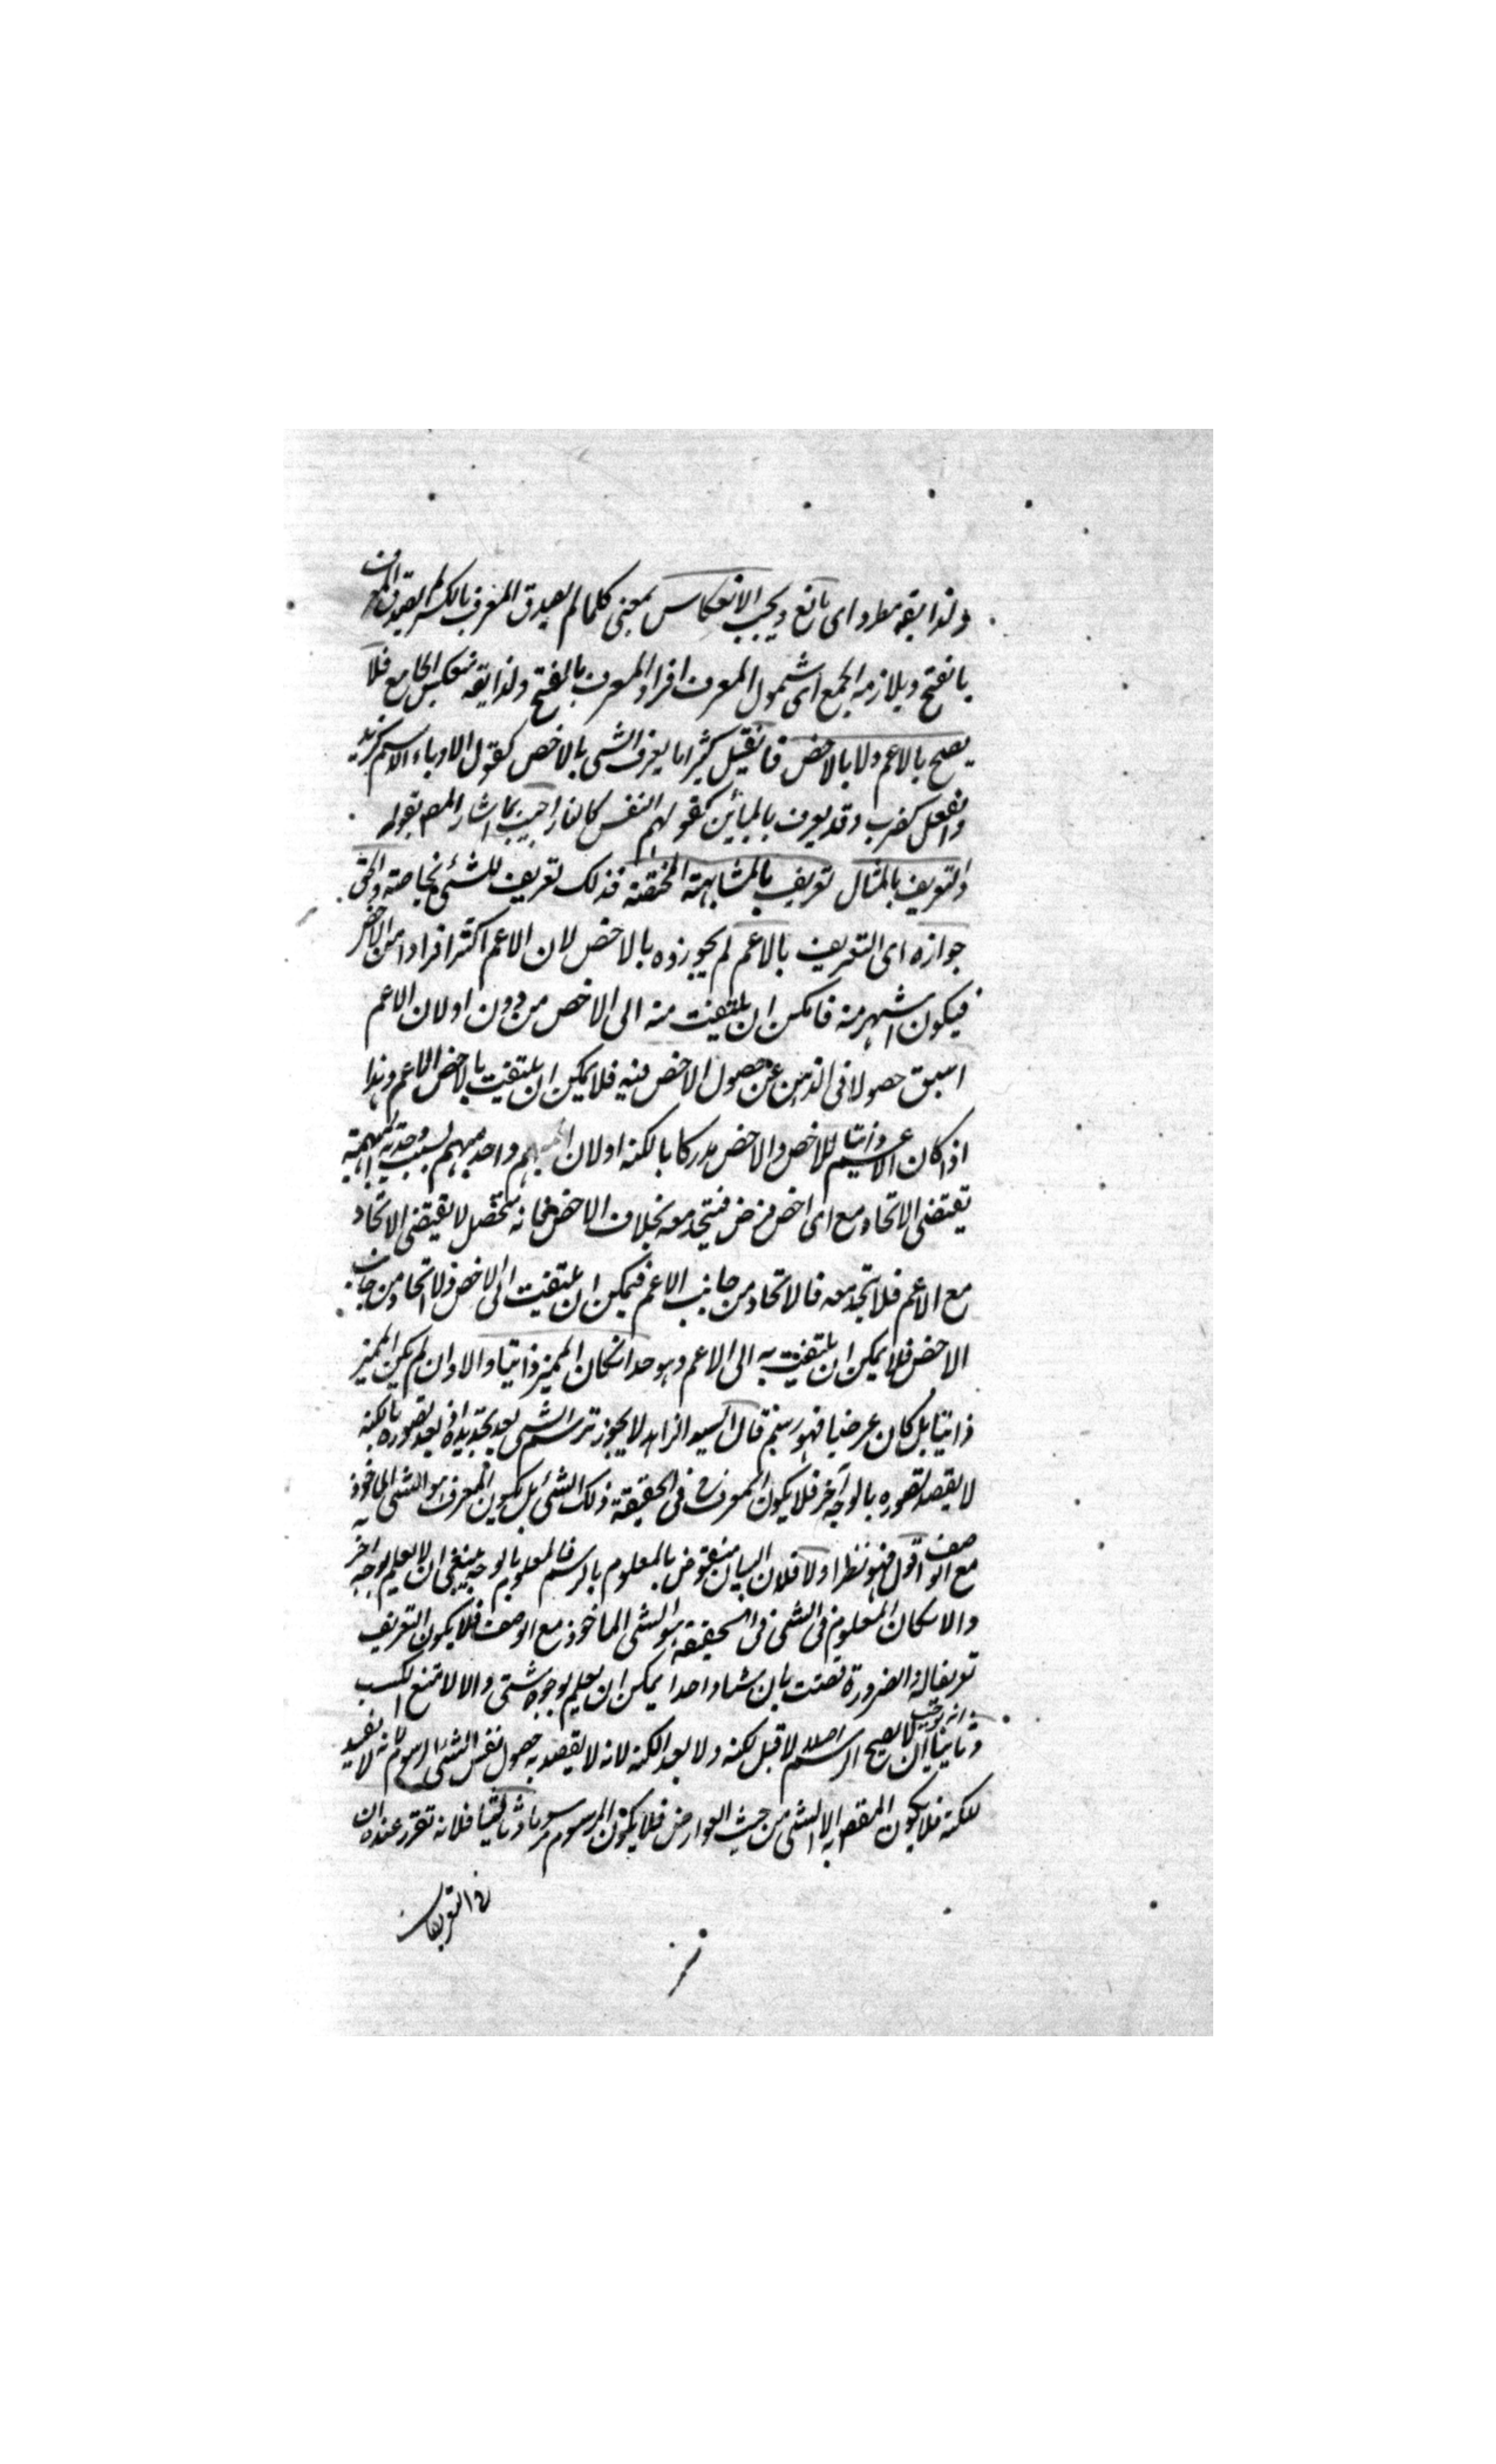 ولذا يقه مطرد اى مانع ويجب الانعكاس بمعنى كلما لم يصدق المعرف بالكسر لم يصدق المعرف
بالفتح ويلازمه الجمع اى شمول المعرف افراد المعرف بالفتح ولذا يقه منعكس الجامع فلا
يصح بالاعم ولا بالاخص فان قيل كثيرا ما يعرف الشى بالاخص كقول الادباء الاسم كزيد
والفعل كضرب وقد يعرف بالمباين كقولهم النفس كالنار اجيب بما اشار المصـ بقوله
والتعريف بالمثال تعريف بالمشابهة المختصة فذلك تعريف للشئ بخاصته والحق
جوازه اى التعريف بالاعم لم يجوزوه بالاخص لان الاعم اكثر افرادا من الاخص
فيكون اشهر منه فامكن ان يلتفت منه الى الاخص من دون اولان الاعم
اسبق حصولا فى الذهن عن حصول الاخص فيه فلا يمكن ان يلتفت بالاخص الى الاعم وهذا
اذا كان الاعم ذاتيا للاخص والاخص مدركا بالكنه اولان المبهم واحد مبهم بسبب وحدته المبهمة
تقتضى الاتحاد مع اى اخص فرض فيتحد معه بخلاف الاخص فانه متحصل لا يقتضى الاتحاد
مع الاعم فلا يتحد معه فالاتحاد من جانب الاعم فيمكن ان يلتفت الى الاخص ولا اتحاد من جانب
الاخص فلا يمكن ان يلتفت به الى الاعم وهو حد ان كان المميز ذاتيا والا وان لم يكن المميز
ذاتيا بل كان عرضيا فهو رسم قال السيد الزاهد لا يجوز ترسيم الشى بعد تحديده اذ بعد تصوره بالكنه
لا يقصد تصوره بالوجه آخر فلا يكون المعرف فى الحقيقة ذلك الشئ بل يكون المعرف هو الشى الماخوذ
مع الوصف اقول فيه نظر اولا فلان البيان منقوض بالمعلوم بالرسم فالمعلوم بالوجه ينبغى ان لا يعلم بوجه آخر
والا لكان المعلوم فى الشى فى الحقيقة هو الشى الماخوذ مع الوصف فلا يكون التعريف
تعريفا له والضرورة قضت بان شيئا واحدا يمكن ان يعلم بوجوه شتى والا لامتنع الكسب
وثانيا انه يوجب ان لا يصح الرسم اصلا لا قبل الكنه ولا بعد الكنه لانه لا يقصد به حصول نفس الشئ المرسوم لانه لا يفيد
للكنه فلا يكون المقصـ به الا الشى من حيث العوارض فلا يكون المرسوم مرسوما وثالثا فلانه تقرر عندهم ان
فى التعريفات